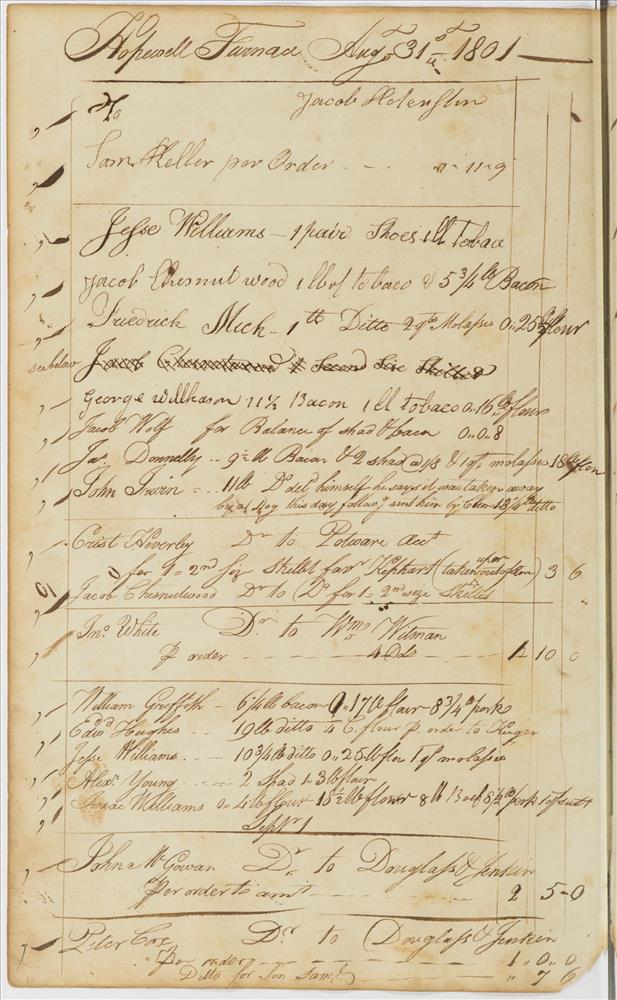 Hopewell Furnace Augt 31st 1801
To Jacob Holenstin
Saml Keller per Order 0 - 11 - 9
Jesse Williams - 1 pair Shoes 1 lb tobaco
Jacob Chesnutwood 1 lb of tobaco & 5 3/4 lb Bacon
Friedrick Mick - 1 lb Ditto 2 qts Molases 0,, 25 lb flour
see below Jacob Chesnutwood 1 Second Size Skillet
George Willkason 11 1/2 Bacon 1 lb tobaco 0,, 16 lb flour
Jacob Wolf for Balance of shad & bacon 0,, 0,, 8
Jas Donnelly - 9 1/2 lb Bacon & 2 shad @ 1/8 & 1 qt molases 18 lb flour
John Irwin - 11 lb Do deld himself he says it was taken away
by a dog this day followg sent him by 13 1/4 lb ditto
Crist Heverley Dr to Potware Acct
for 1 = 2nd Size Skillet favr Kephart (taken) 3 6
01 Jacob Chesnutwood Dr to Do for 1 = 2nd size Skillet
Jno White Dr to Wm Witman
P order - 4 Dols 1 10 0
William Griffith - 6 1/4 lb bacon 0,, 17 lb flour 8 3/4 lb pork
Edwd Hughes - 19 lb ditto 4 C. flour p. order to Kizer
Jesse Williams - 10 3/4 lb ditto 0,, 25 lb flou 1 qt molases
Alexr Young - 2 Shad 1,, 3 lb flour
Isaac Williams 0,, 4 lb flour 15 1/2 lb flower 8 lb Beef 8 1/2 lb pork 1 qt salt
Septr 1
John McGowan Dr to Douglass & Jenkin
Per order to amt 2 5 - 0
Peter Cox Dr to Douglass & Jenkin
Per order 1,, 0,, 0
Ditto for Son Saml ,, 7 6